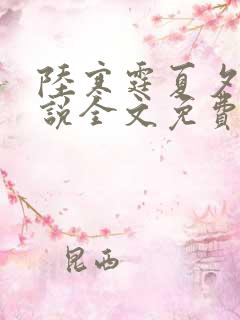 陸寒霆夏夕
說全文免費
昆西